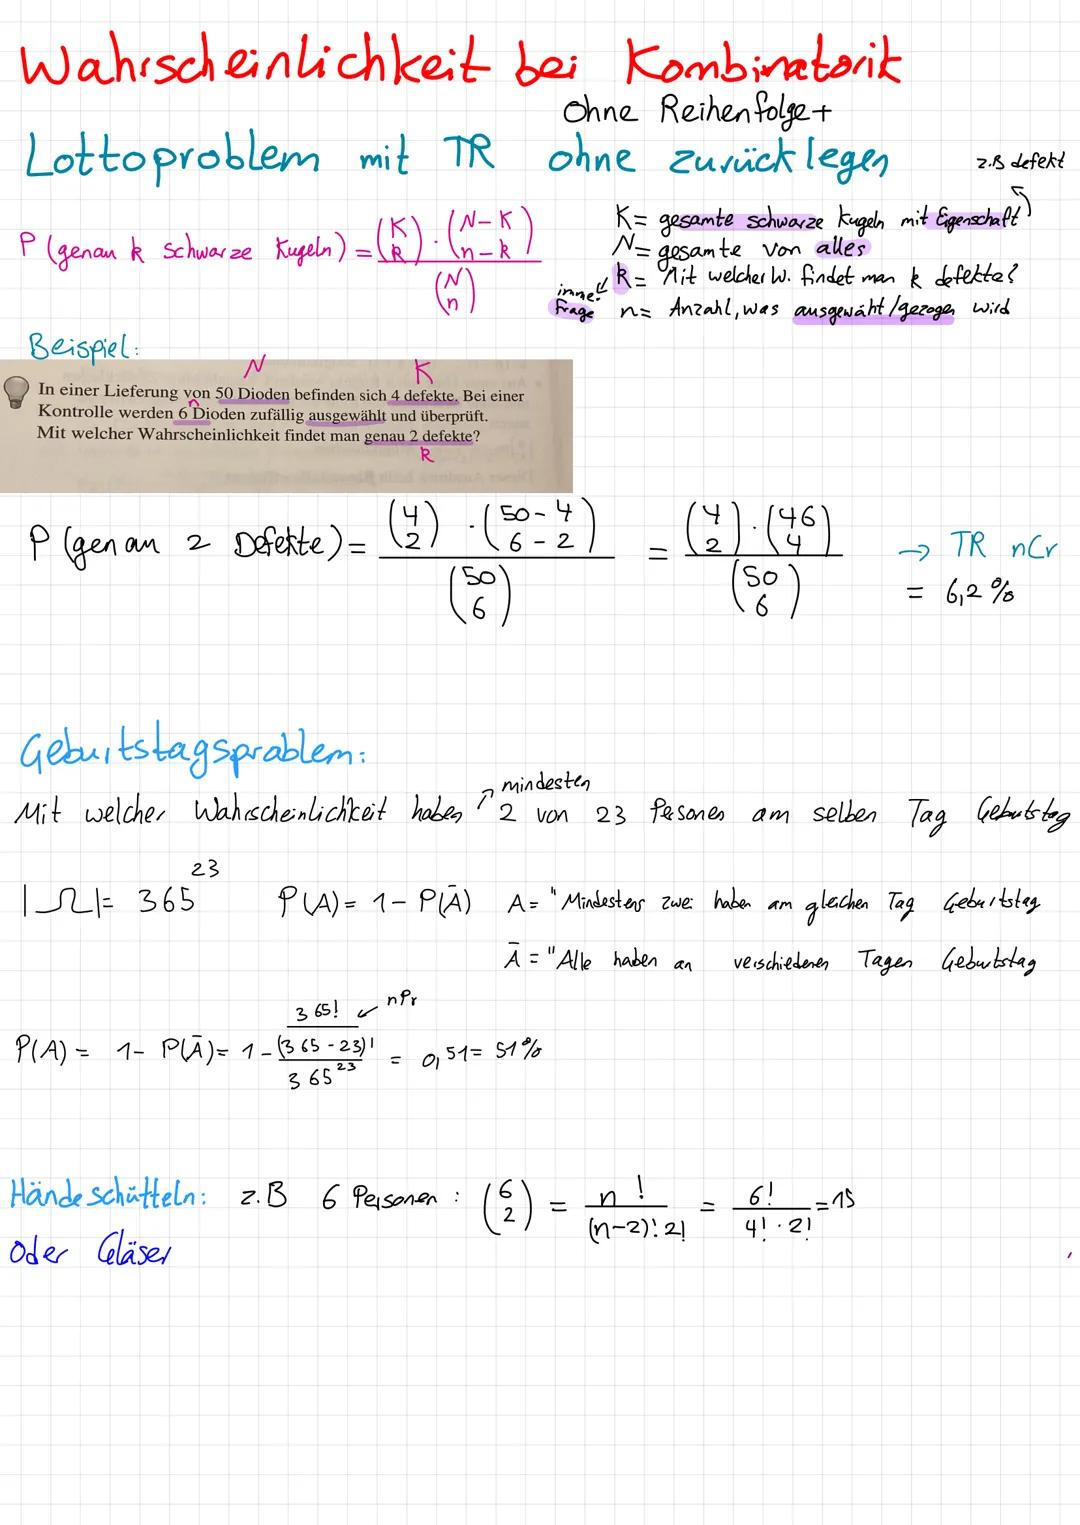 Wahrscheinlichkeit bei Kombinatorik
Ohne Reihenfolge +
Lottoproblem mit TR ohne zurücklegen
z.B defekt
P (genau k schwarze Kugeln) = (K k) · (N-K n-k) / (N n)
K = gesamte schwarze Kugeln mit Eigenschaft
N = gesamte von alles
immer Frage k = Mit welcher W. findet man k defekte?
n = Anzahl, was ausgewäht/gezogen wird
Beispiel:
N K
In einer Lieferung von 50 Dioden befinden sich 4 defekte. Bei einer
n
Kontrolle werden 6 Dioden zufällig ausgewählt und überprüft.
Mit welcher Wahrscheinlichkeit findet man genau 2 defekte?
k
P (genau 2 Defekte) = (4 2) · (50-4 6-2) / (50 6) = (4 2) · (46 4) / (50 6) → TR nCr
= 6,2 %
Geburtstagsproblem:
mindesten
Mit welcher Wahrscheinlichkeit haben 2 von 23 Personen am selben Tag Geburtstag
|Ω| = 365^23 P(A) = 1 - P(Ā) A = "Mindestens zwei haben am gleichen Tag Geburtstag
Ā = "Alle haben an verschiedenen Tagen Geburtstag
P(A) = 1 - P(Ā) = 1 - 365! / (365-23)! / 365^23 = 0,51 = 51%
nPr
Hände schütteln: z.B 6 Personen : (6 2) = n! / (n-2)! 2! = 6! / 4! · 2! = 15
Oder Gläser